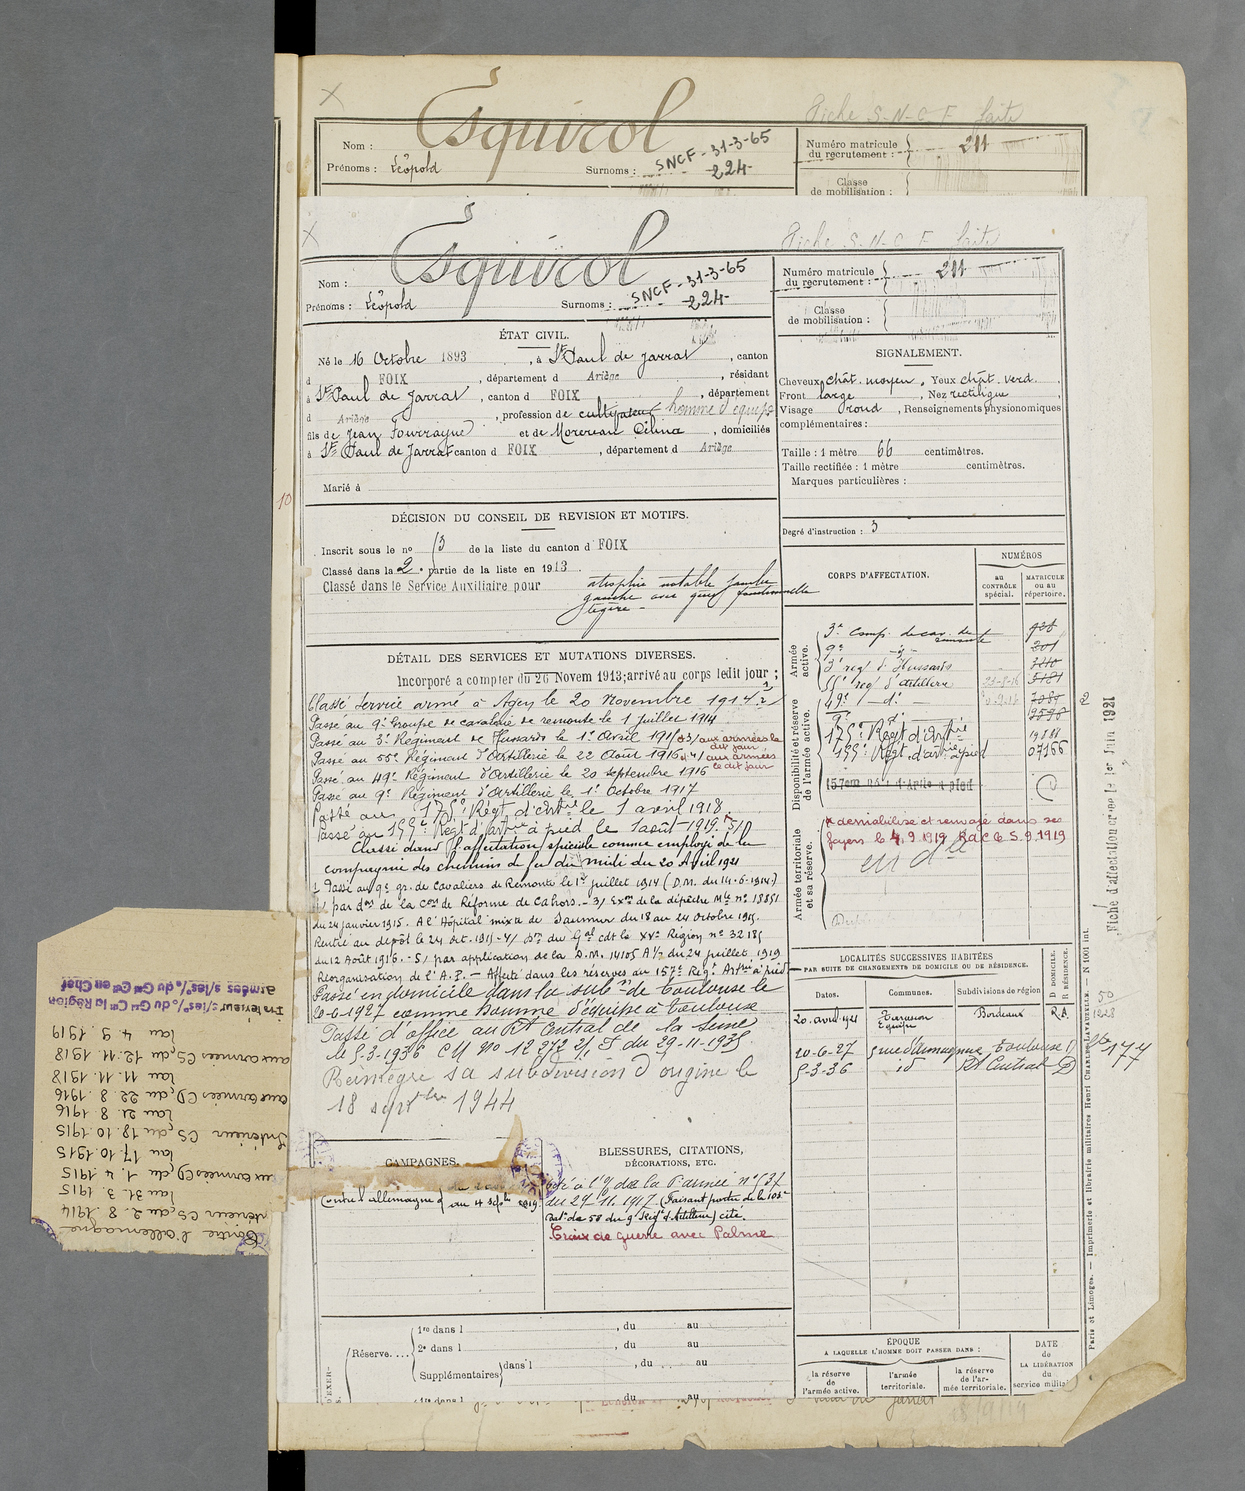 Esquirol
Fiche S.N.C.F. faite
Nom :
Prénoms : Léopold
Surnoms :
SNCF - 31-3-65
-224-
Numéro matricule
du recrutement : 211
Classe
de mobilisation :
Esquirol
Fiche S.N.C.F. faite
Nom :
Prénoms : Léopold
Surnoms :
SNCF - 31-3-65
-224-
Numéro matricule
du recrutement : 211
Classe
de mobilisation :
ÉTAT CIVIL.
Né le 16 Octobre 1893, à St Paul de Jarrat, canton
d FOIX, département d Ariège, résidant
à St Paul de Jarrat, canton d FOIX, département
d Ariège, profession de cultivateur homme d'équipe
fils de Jean et de Célina, domiciliés
à St Paul de Jarrat canton d FOIX, département d Ariège
Marié à
SIGNALEMENT.
Cheveux chât. moyen. Yeux chât. verd.
Front large, Nez rectiligne,
Visage rond, Renseignements physionomiques
complémentaires :
Taille : 1 mètre 66 centimètres.
Taille rectifiée : 1 mètre centimètres.
Marques particulières :
Degré d'instruction : 3
10
DÉCISION DU CONSEIL DE REVISION ET MOTIFS.
Inscrit sous le no 13 de la liste du canton d FOIX
Classé dans la 2e partie de la liste en 1913.
Classé dans le Service Auxiliaire pour atrophie notable jambe
gauche avec gêne fonctionnelle
légère -
CORPS D'AFFECTATION.
NUMÉROS
au
CONTRÔLE
spécial.
MATRICULE
ou au
répertoire.
Armée
active.
3e Comp. de cav. de remonte
9e
3e rég. d'Hussards
55e rég. d'artillerie
49e
175e Régt d'Artie
19881
155e Régt d'artie à pied
07166
157em Rég. d'Artie à pied
Disponibilité et réserve
de l'armée active.
Armée territoriale
et sa réserve.
démobilisé et renvoyé dans ses
foyers le 4.9.1919 R.d.C. le 5.9.1919
DÉTAIL DES SERVICES ET MUTATIONS DIVERSES.
Incorporé à compter du 26 Novem 1913; arrivé au corps ledit jour ;
Classé service armé à Agen le 20 Novembre 1914
Passé au 9e Groupe de cavalerie de remonte le 1 juillet 1914
Passé au 3e Régiment de Hussards le 1er Avril 1915 aux armées le
dit jour
Passé au 55e Régiment d'Artillerie le 22 Août 1916 aux armées
le dit jour
Passé au 49e Régiment d'Artillerie le 20 septembre 1916
Passé au 9e Régiment d'Artillerie le 1er Octobre 1917
Passé au 175e Régt d'Artie le 1 avril 1918.
Passé au 155e Régt d'artie à pied le 1 août 1919.
Classé dans l'affectation spéciale comme employé de la
compagnie des chemins de fer du midi du 20 Avril 1921
Passé au 9e gr. de Cavaliers de Remonte le 1er juillet 1914 (D.M. du 14-6-1914)
par don de la Con de Réforme de Cahors. - 3/ Exon de la dépêche Mle no 18851
du 24 janvier 1915. A l'Hôpital mixte de Saumur du 18 au 24 octobre 1915.
Rentré au dépôt le 24 oct. 1915 - 4/ Don du Gal cdt la XVe Région no 32185
du 12 Août 1916. - 5/ par application de la D.M. 14105 A 1/2 du 24 juillet 1919
Réorganisation de l'A.P. - Affecté dans les réserves au 157e Régt Artie à pied
Passé en domicile dans la subon de Toulouse le
20-6-1927 comme homme d'équipe à Toulouse
Passé d'office au Rt Central de la Seine
le 5-3-1936 C.M. No 12972 du 29-11-1935
Réintégré sa subdivision d'origine le
18 septembre 1944
LOCALITÉS SUCCESSIVES HABITÉES
PAR SUITE DE CHANGEMENTS DE DOMICILE OU DE RÉSIDENCE.
Dates.
Communes.
Subdivisions de région
D DOMICILE.
R RÉSIDENCE.
20 avril 1921 Bordeaux R.A.
20-6-27 Toulouse D
5-3-36 id Rt Central D
177
Fiche d'affectation créée le 1er Juin 1921
Paris et Limoges. — Imprimerie et librairie militaires Henri CHARLES-LAVAUZELLE. — N 1001 int.
CAMPAGNES.
Contre l'allemagne
au 4 septe 1919.
BLESSURES, CITATIONS,
DÉCORATIONS, ETC.
Cité à l'O de la Parmée no 137
du 29.11.1917. (Faisant partie de la 101e
Bat. de 58 du 9e Régt d'Artillerie) cité.
Croix de guerre avec Palme
Réserve....
1re dans l , du au
2e dans l , du au
Supplémentaires dans l , du au
1re dans l , du au
ÉPOQUE
A LAQUELLE L'HOMME DOIT PASSER DANS :
la réserve
de
l'armée active.
l'armée
territoriale.
la réserve
de l'ar-
mée territoriale.
DATE
de
LA LIBÉRATION
du
service milit
Contre l'allemagne
Intérieur CS, du 2. 8. 1914
au 31. 3. 1915
aux armées CD, du 1. 4. 1915
au 17. 10. 1915
Intérieur CS, du 18. 10. 1915
au 21. 8. 1916
aux armées CD, du 22. 8. 1916
au 11. 11. 1918
aux armées CS, du 12. 11. 1918
au 4. 9. 1919